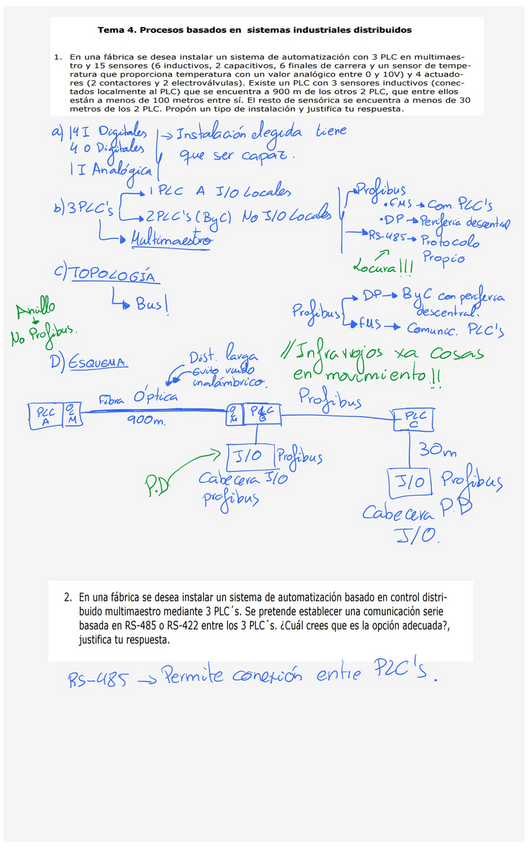 Tema 4. Procesos basados en sistemas industriales distribuidos
1. En una fábrica se desea instalar un sistema de automatización con 3 PLC en multimaes-
tro y 15 sensores (6 inductivos, 2 capacitivos, 6 finales de carrera y un sensor de tempe-
ratura que proporciona temperatura con un valor analógico entre 0 y 10V) y 4 actuado-
res (2 contactores y 2 electroválvulas). Existe un PLC con 3 sensores inductivos (conec-
tados localmente al PLC) que se encuentra a 900 m de los otros 2 PLC, que entre ellos
están a menos de 100 metros entre sí. El resto de sensórica se encuentra a menos de 30
metros de los 2 PLC. Propón un tipo de instalación y justifica tu respuesta.
a) 14 I Digitales → Instalación elegida tiene
4 O Digitales que ser capaz.
1 I Analógica
b) 3 PLC's
1 PLC A I/O Locales
2 PLC's (ByC) No I/O Locales
Multimaestro
Profibus
• FMS → Com PLC's
• DP → Periferia descentral
RS-485 → Protocolo
Propio
Locura!!!
C) TOPOLOGÍA
Bus!
Anillo
No Profibus.
Profibus
DP → ByC con periferia
descentral.
FMS → Comunic. PLC's
D) ESQUEMA
Dist. larga
Evito ruido
inalámbrico.
// Infrarrojos xa cosas
en movimiento!!
PLC
A
OLM
Fibra Óptica
900m.
OLM
PLC
B
Profibus
PLC
C
I/O Profibus
Cabecera I/O
profibus
P.D
30m
I/O Profibus
Cabecera P.D
I/O.
2. En una fábrica se desea instalar un sistema de automatización basado en control distri-
buido multimaestro mediante 3 PLC´s. Se pretende establecer una comunicación serie
basada en RS-485 o RS-422 entre los 3 PLC´s. ¿Cuál crees que es la opción adecuada?,
justifica tu respuesta.
RS-485 → Permite conexión entre PLC's.